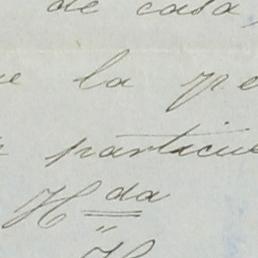 de casa
la pe
particu
H da
"
H